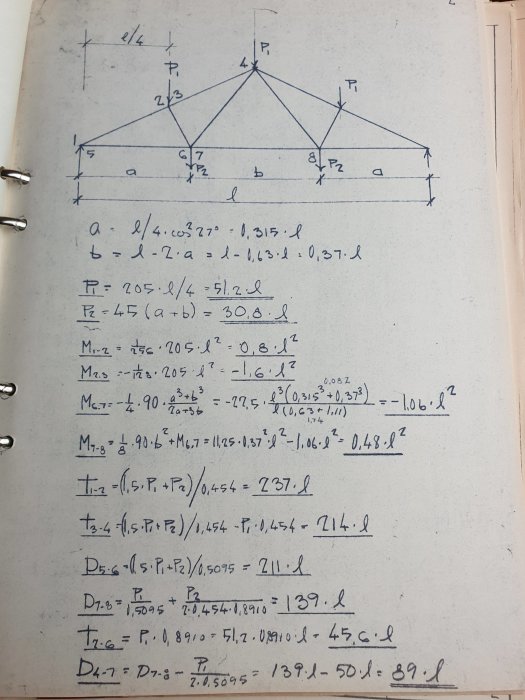 l/4
P₁
4
P₁
P₁
2 3
1
5
6 7
8
P₂
P₂
a
b
a
l
a = l/4·cos²27° = 0,315·l
b = l - 2·a = l - 0,63·l = 0,37·l
P₁ = 205·l/4 = 51,2·l
P₂ = 45(a+b) = 30,8·l
M₁₋₂ = 1/256·205·l² = 0,8·l²
M₂.₃ = -1/128·205·l² = -1,6·l²
0,082
M₆.₇ = -1/4·90·(a³+b³)/(2a+3b) = -22,5·l³(0,315³+0,37³)/l(0,63+1,11) = -1,06·l²
1,74
M₇₋₈ = 1/8·90·b²+M₆.₇ = 11,25·0,37²·l²-1,06·l² = 0,48·l²
t₁₋₂ = (1,5·P₁+P₂)/0,454 = 237·l
t₃₋₄ = (1,5·P₁+P₂)/0,454 - P₁·0,454 = 214·l
D₅₋₆ = (1,5·P₁+P₂)/0,5095 = 211·l
D₇₋₈ = P₁/0,5095 + P₂/2·0,454·0,8910 = 139·l
t₂₋₆ = P₁·0,8910 = 51,2·0,8910·l = 45,6·l
D₄₋₇ = D₇₋₈ - P₁/2·0,5095 = 139·l - 50·l = 89·l